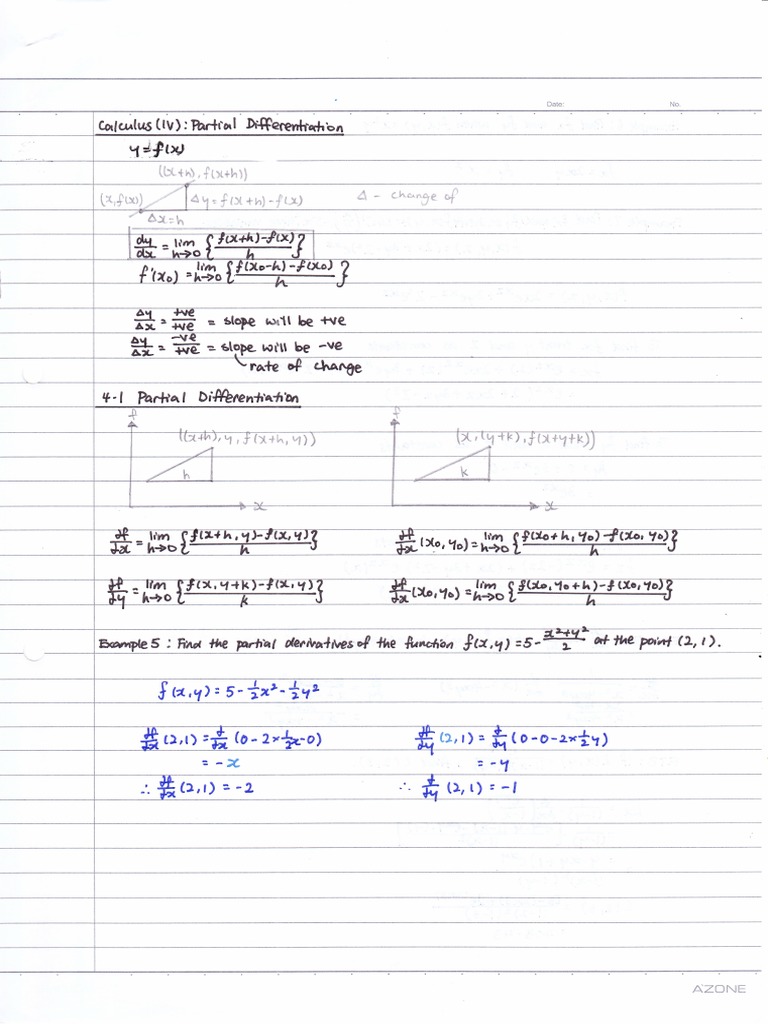 Date: No.
Calculus (IV): Partial Differentiation
y = f(x)
((x+h), f(x+h))
(x, f(x)) Δy = f(x+h) - f(x) Δ - change of
Δx = h
dy/dx = lim h→0 { f(x+h) - f(x) / h }
f'(x0) = lim h→0 { f(x0-h) - f(x0) / h }
Δy/Δx = +ve/+ve = slope will be +ve
Δy/Δx = -ve/+ve = slope will be -ve
rate of change
4-1 Partial Differentiation
f f
((x+h), y, f(x+h, y)) (x, (y+k), f(x+y+k))
h k
x x
∂f/∂x = lim h→0 { f(x+h, y) - f(x, y) / h } ∂f/∂x (x0, y0) = lim h→0 { f(x0+h, y0) - f(x0, y0) / h }
∂f/∂y = lim h→0 { f(x, y+k) - f(x, y) / k } ∂f/∂x (x0, y0) = lim h→0 { f(x0, y0+h) - f(x0, y0) / h }
Example 5 : Find the partial derivatives of the function f(x, y) = 5 - x²+y²/2 at the point (2, 1).
f(x, y) = 5 - ½x² - ½y²
∂f/∂x (2, 1) = ∂/∂x (0 - 2 × ½x - 0) ∂f/∂y (2, 1) = ∂/∂y (0 - 0 - 2 × ½y)
= -x = -y
∴ ∂f/∂x (2, 1) = -2 ∴ ∂/∂y (2, 1) = -1
A'ZONE